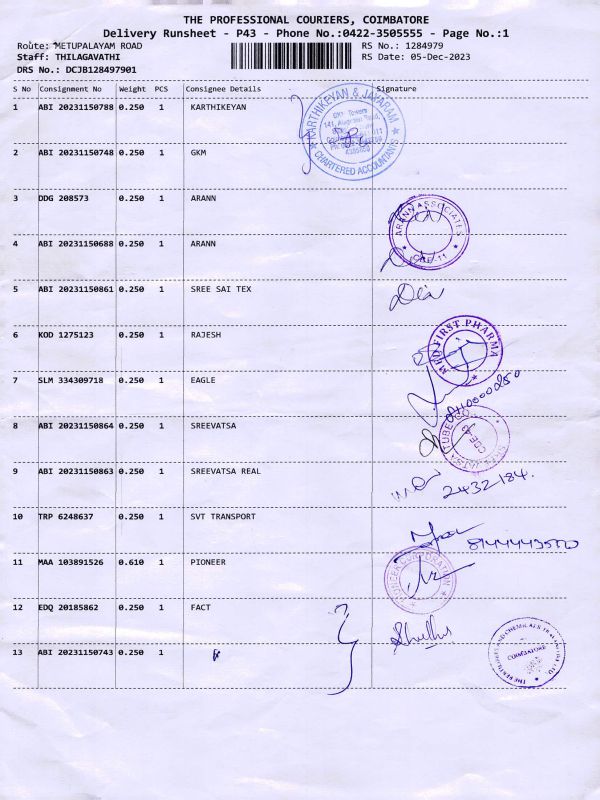 THE PROFESSIONAL COURIERS, COIMBATORE
Delivery Runsheet - P43 - Phone No.:0422-3505555 - Page No.:1
Route: METUPALAYAM ROAD RS No.: 1284979
Staff: THILAGAVATHI RS Date: 05-Dec-2023
DRS No.: DCJB128497901
S No Consignment No Weight PCS Consignee Details Signature
1 ABI 20231150788 0.250 1 KARTHIKEYAN
KARTHIKEYAN & JAYARAM
CHARTERED ACCOUNTANTS
2 ABI 20231150748 0.250 1 GKM
3 DDG 208573 0.250 1 ARANN
ARANN ASSOCIATES
4 ABI 20231150688 0.250 1 ARANN
5 ABI 20231150861 0.250 1 SREE SAI TEX
6 KOD 1275123 0.250 1 RAJESH
MED FIRST PHARMA
7 SLM 334309718 0.250 1 EAGLE
8 ABI 20231150864 0.250 1 SREEVATSA
9 ABI 20231150863 0.250 1 SREEVATSA REAL
2432184.
10 TRP 6248637 0.250 1 SVT TRANSPORT
11 MAA 103891526 0.610 1 PIONEER
PIONEER CORPORATION
12 EDQ 20185862 0.250 1 FACT
COIMBATORE
13 ABI 20231150743 0.250 1